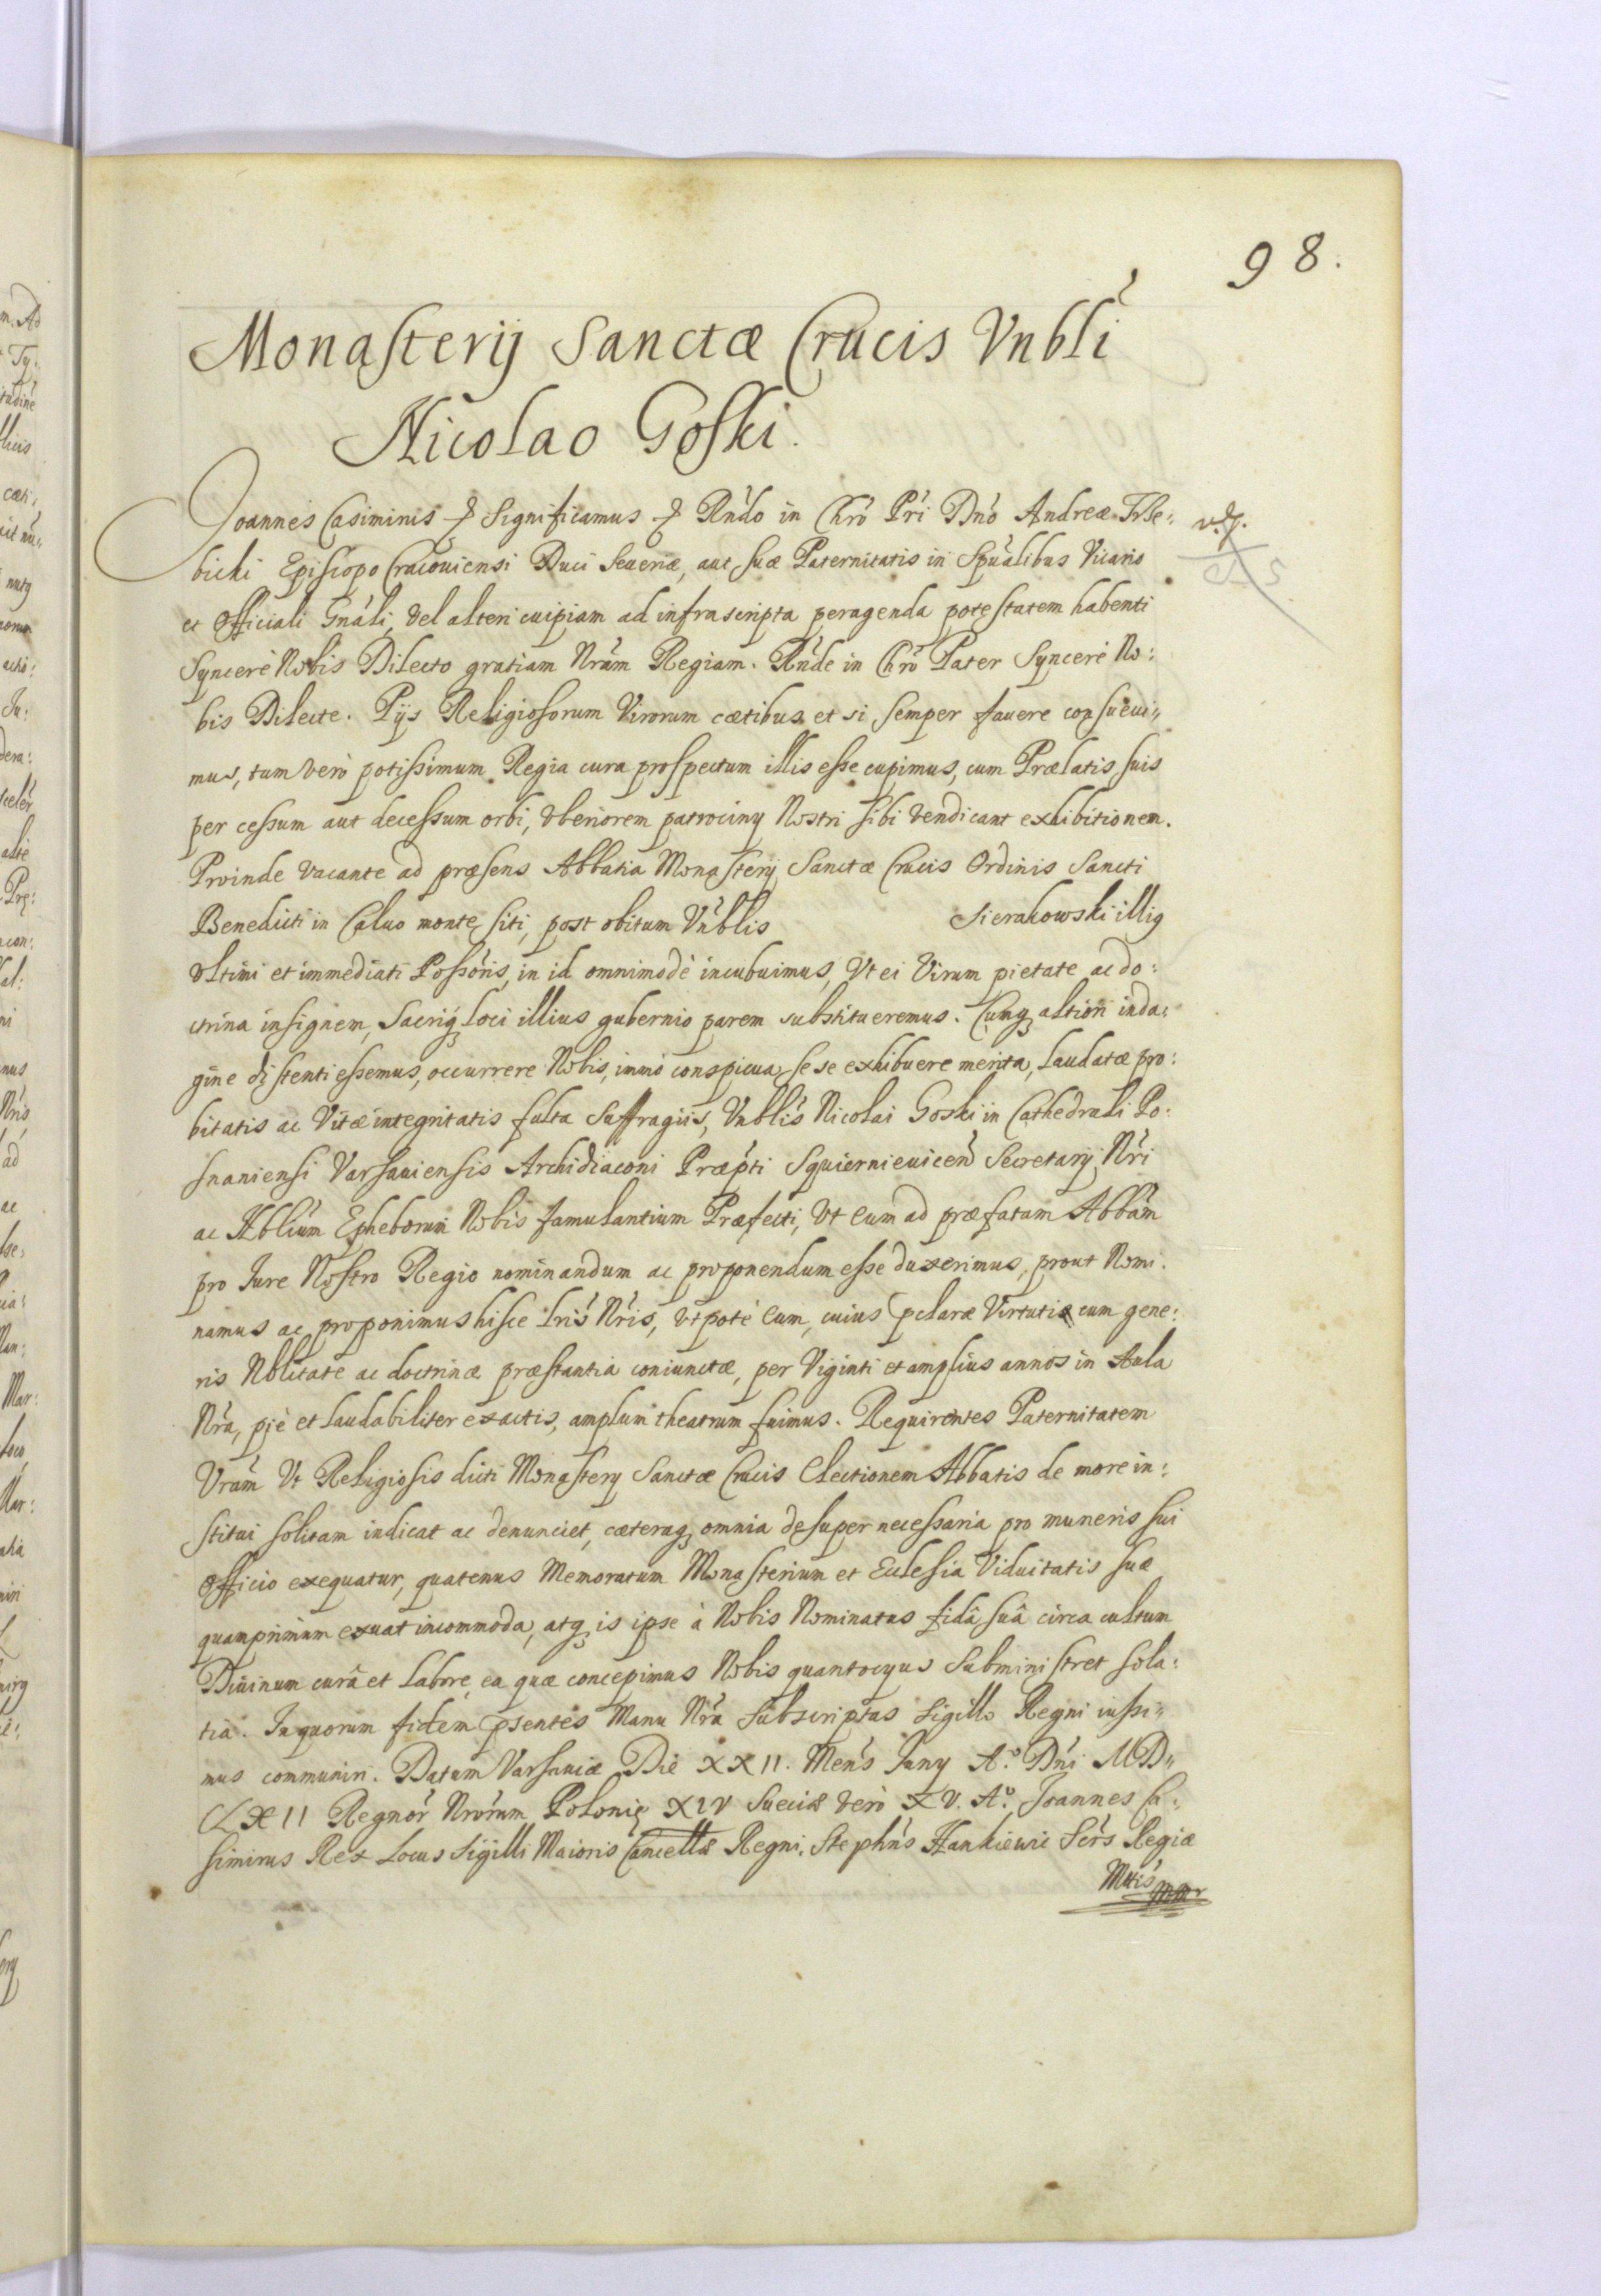 98.
Monasterij Sanctæ Crucis Vnbli
Nicolao Goski.
Joannes Casimirus & Significamus & Rndo in Chro Pri Dno Andreæ Trze„
bicki Episcopo Cracouiensi Duci Seueriæ, aut suæ Paternitatis in Spualibus Vicario
et Officiali Gnali, vel alteri cuipiam ad infrascripta peragenda potestatem habenti
Syncerè Nobis Dilecto gratiam Nram Regiam. Rnde in Chro Pater Syncerè No:
bis Dilecte. Pijs Religiosorum Virorum cætibus et si semper fauere consueui„
mus, tum verò potissimum Regia cura prospectum illis esse cupimus, cum Prælatis suis
per cessum aut decessum orbi, vberiorem patrocinij Nostri sibi vendicant exhibitionem.
Proinde vacante ad præsens Abbatia Monasterij Sanctæ Crucis Ordinis Sancti
Benedicti in Caluo monte siti, post obitum Vnblis Sierakowski illiq
vltimi et immediati Possoris, in id omnimodè incubuimus, Vt ei Virum pietate ac do:
ctrina insignem, Sacriq loci illius gubernio parem substitueremus. Cumq altiori inda:
gine distenti essemus, occurrere Nobis, immò conspicua sese exhibuere merita, laudatæ pro:
bitatis ac Vitæ integritatis fulta suffragijs, Vnblis Nicolai Goski in Cathedrali Po:
snaniensi Varsauiensis Archidiaconi Præpti Squierniewicen Secretarij Nri
ac Nblium Epheborum Nobis famulantium Præfecti, Vt eum ad præfatam Abbam
pro Jure Nostro Regio nominandum ac proponendum esse duxerimus, prout Nomi.
namus ac proponimus hisce Lris Nris, vtpotè eum, cuius pclaræ Virtutis cum gene:
ris Nblitate ac doctrinæ præstantia coniunctæ, per Viginti et amplius annos in Aula
Nra, piè et laudabiliter exactis, amplum theatrum fuimus. Requirentes Paternitatem
Vram Vt Religiosis dicti Monasterij Sanctæ Crucis Electionem Abbatis de more in:
stitui solitam indicat ac denunciet, cæteraq omnia desuper necessaria pro muneris sui
Officio exequatur, quatenus Memoratum Monasterium et Ecclesia Viduitatis suæ
quamprimum exuat incommoda, atq is ipse à Nobis Nominatus fidâ suâ circa cultum
Diuinum curâ et labore ea quæ concepimus Nobis quantocyus subministret sola:
tia. In quorum fidem psentes Manu Nra subscriptas Sigillo Regni iussi„
mus communiri. Datum Varsauiæ Die XXII. Mens Junij Ao. Dni MD„
CLXII Regnor Nrorum Poloniæ XIV Sueciæ verò XV. Ao. Joannes Ca„
simirus Rex Locus Sigilli Maioris Cancellæ Regni. Stephns Hankiewic Secrs Regiæ
Mttis mpr